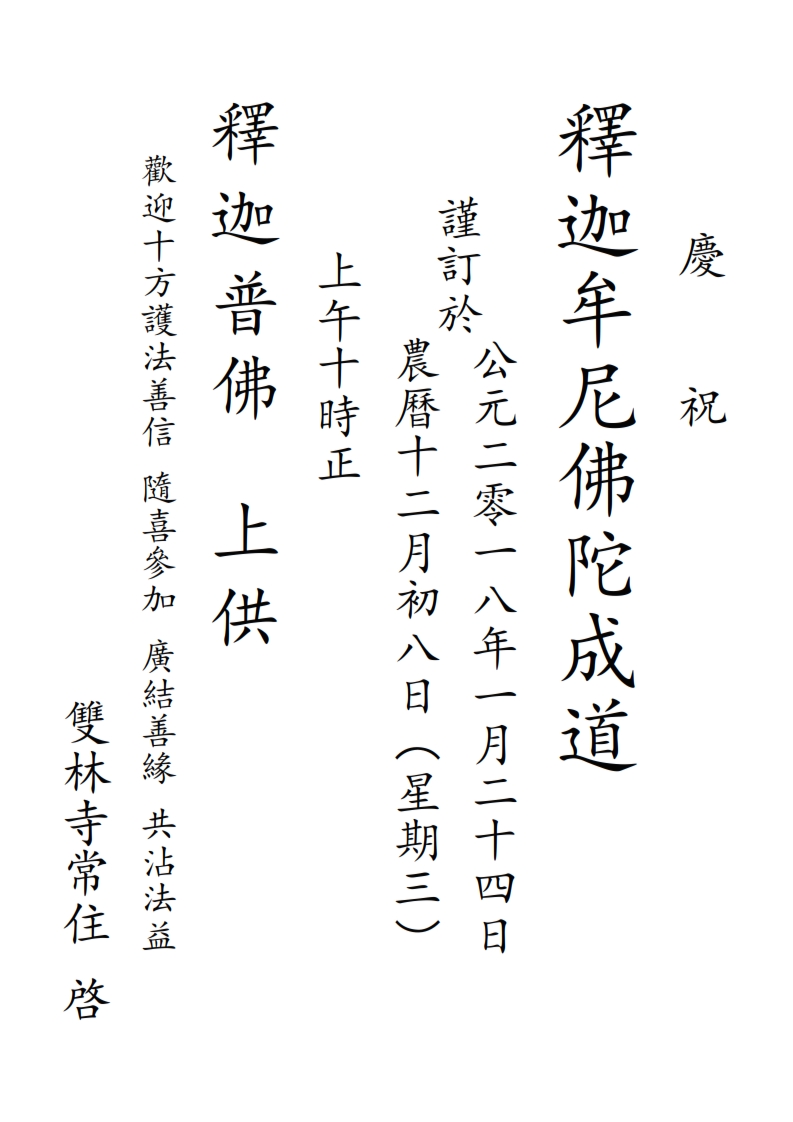 慶祝
釋迦牟尼佛陀成道
謹訂於
公元二零一八年一月二十四日
農曆十二月初八日（星期三）
上午十時正
釋迦普佛 上供
歡迎十方護法善信 隨喜參加 廣結善緣 共沾法益
雙林寺常住 啓